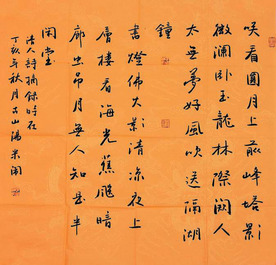 咲看圓月上前峰塔影
微瀾卧玉龍林際闕人
太無夢好風吹送隔湖
鐘
書燈佛火影清涼夜上
層樓看海光蕉隱暗
廊虫吊月無人知是半
闲堂
清人詩摘錄时在
丁亥年秋月古山湯